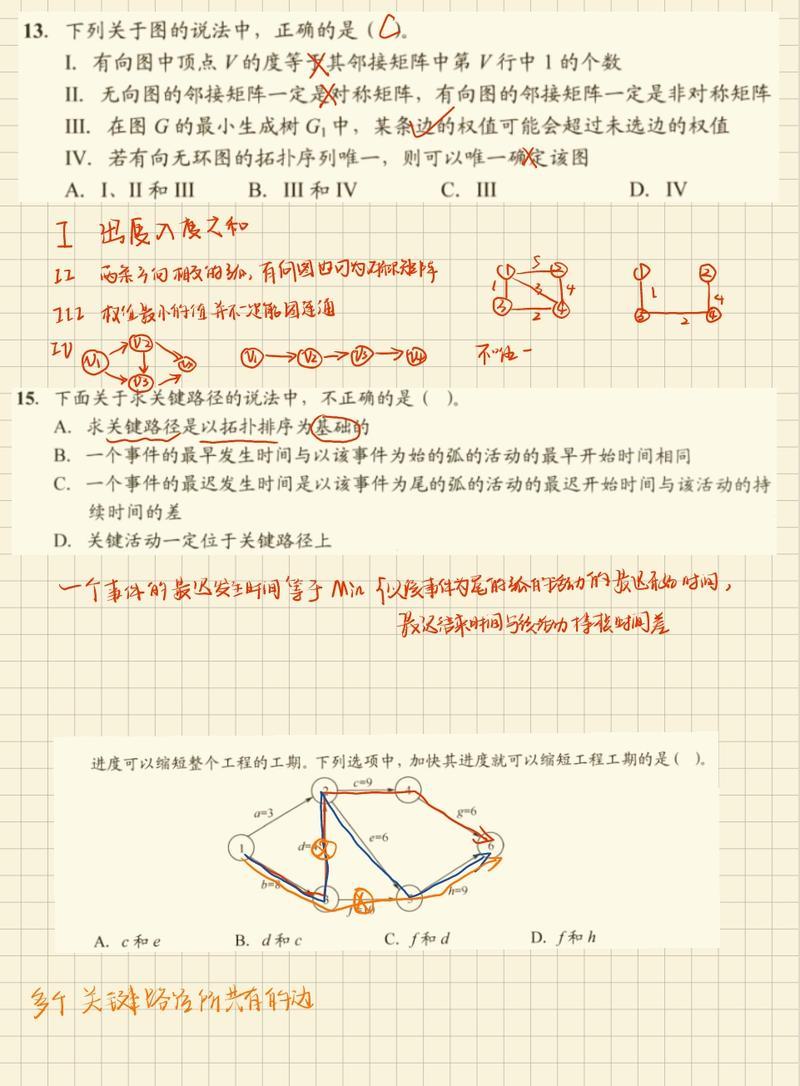 13. 下列关于图的说法中，正确的是（C）。
I. 有向图中顶点 V 的度等于其邻接矩阵中第 V 行中 1 的个数
II. 无向图的邻接矩阵一定是对称矩阵，有向图的邻接矩阵一定是非对称矩阵
III. 在图 G 的最小生成树 G₁ 中，某条边的权值可能会超过未选边的权值
IV. 若有向无环图的拓扑序列唯一，则可以唯一确定该图
A. I、II 和 III B. III 和 IV C. III D. IV
I 出度入度之和
II 两条方向相反的弧，有向图也可为对称矩阵
III 权值最小的值并不一定能图连通
1 5 2 1 3 4 3 2 4
1 2 1 4 3 2 4
IV V1 V2 V3 V1 V2 V3 V4 不唯一
15. 下面关于求关键路径的说法中，不正确的是（ ）。
A. 求关键路径是以拓扑排序为基础的
B. 一个事件的最早发生时间与以该事件为始的弧的活动的最早开始时间相同
C. 一个事件的最迟发生时间是以该事件为尾的弧的活动的最迟开始时间与该活动的持
续时间的差
D. 关键活动一定位于关键路径上
一个事件的最迟发生时间等于 Min {以该事件为尾的弧的活动的最迟开始时间，
最迟结束时间与该活动持续时间差
进度可以缩短整个工程的工期。下列选项中，加快其进度就可以缩短工程工期的是（ ）。
2 c=9
a=3 g=6
1 e=6 6
b=8 3 h=9
A. c 和 e B. d 和 c C. f 和 d D. f 和 h
多个关键路径所共有的边